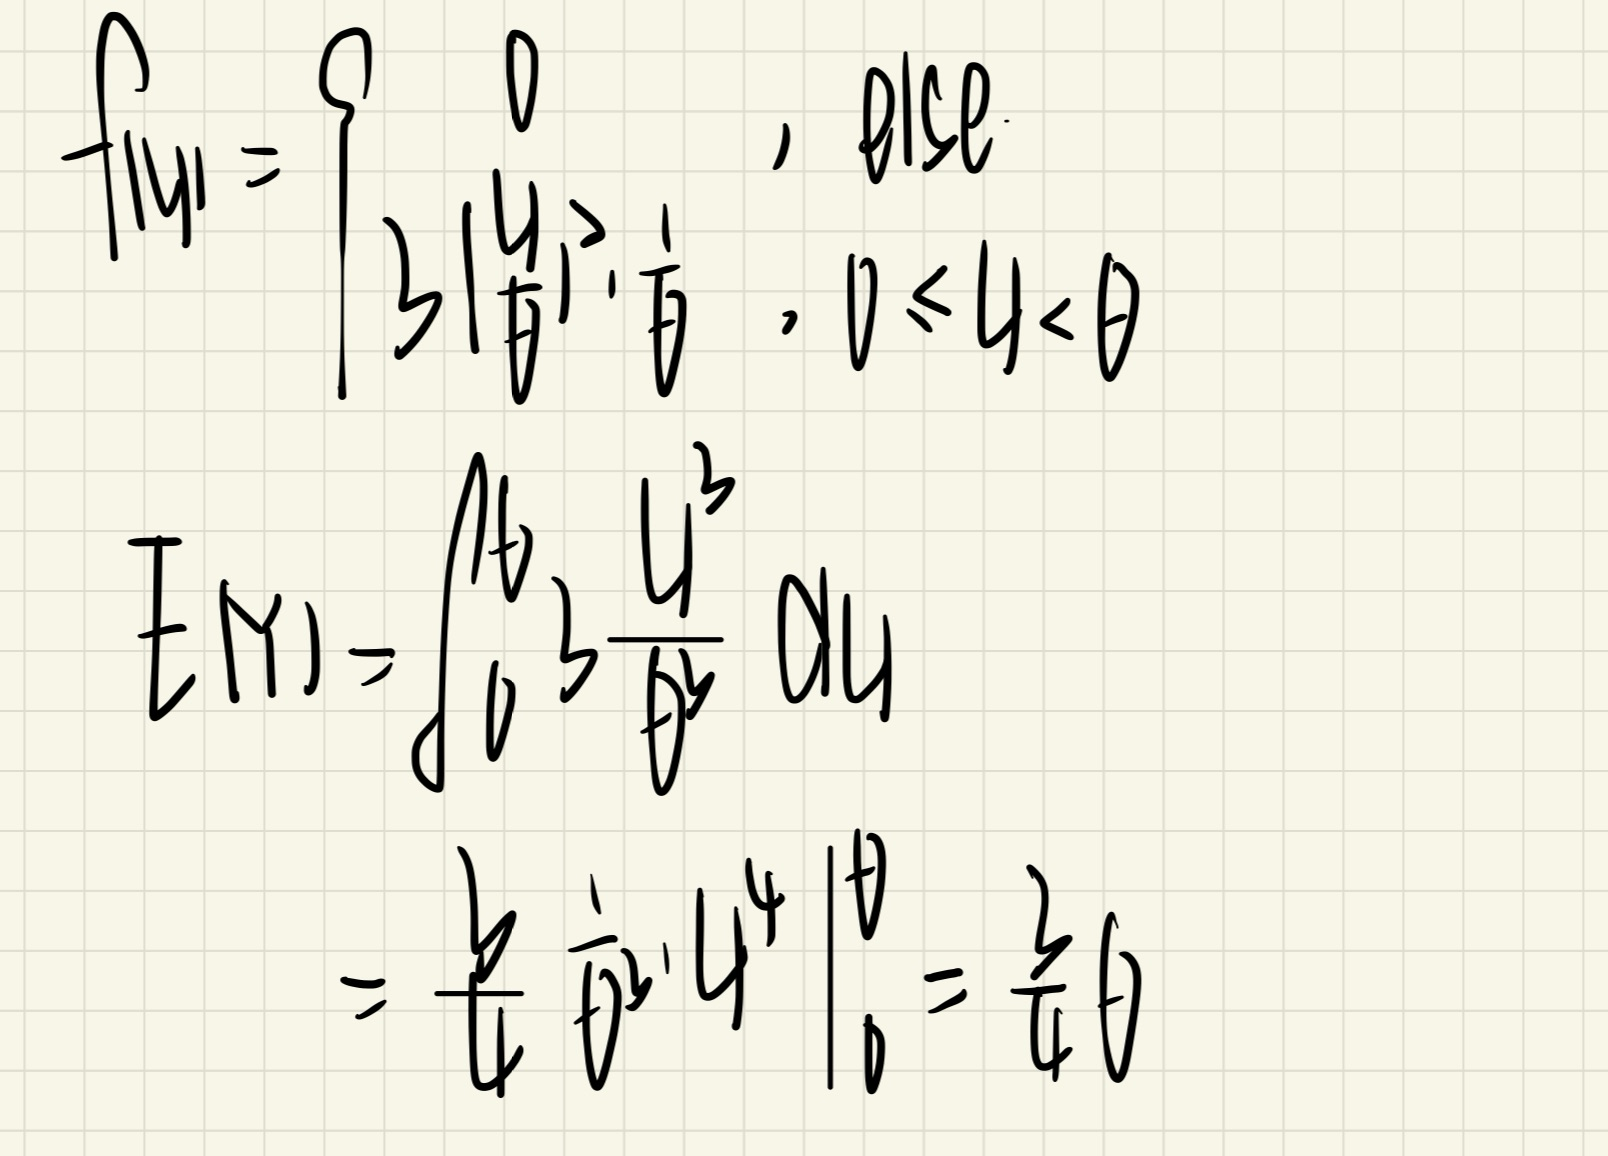 f(y) = { 0 , else
3(y/θ)² · 1/θ , 0 ≤ y < θ
E(Y) = ∫₀^θ 3 y³/θ³ dy
= 3/4 1/θ³ · y⁴ |₀^θ = 3/4 θ